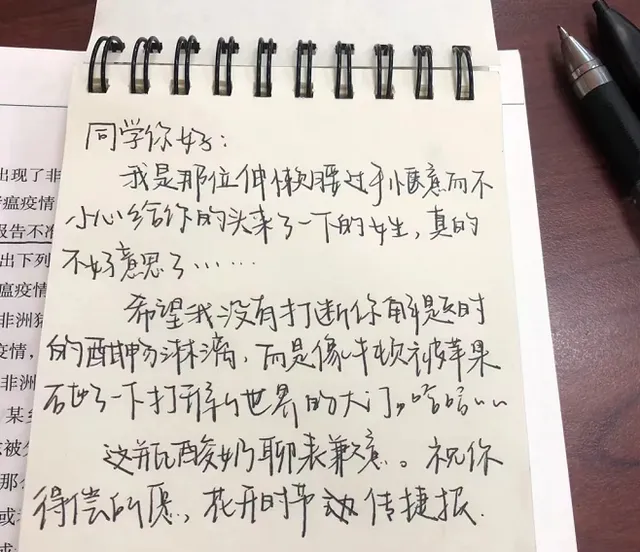 同学你好：
我是那位伸懒腰过于惬意而不
小心给你的头来了一下的女生，真的
不好意思了……
希望我没有打断你解题时
的酣畅淋漓，而是像牛顿被苹果
砸了一下打开新世界的大门。哈哈……
这瓶酸奶聊表歉意。祝你
得偿所愿，花开时节 传捷报.
出现了非
瘟疫情
报告不准
出下列
瘟疫情
非洲猪
疫情，
非洲
某乡
被父
那么
或
或者